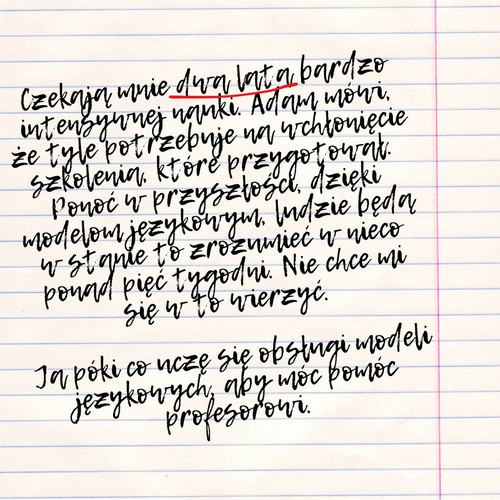 Czekają mnie dwa lata bardzo
intensywnej nauki. Adam mówi,
że tyle potrzebuje na wchłonięcie
szkolenia, które przygotował.
Ponoć w przyszłości, dzięki
modelom językowym, ludzie będą
w stanie to zrozumieć w nieco
ponad pięć tygodni. Nie chce mi
się w to wierzyć.
Ja póki co uczę się obsługi modeli
językowych, aby móc pomóc
profesorowi.